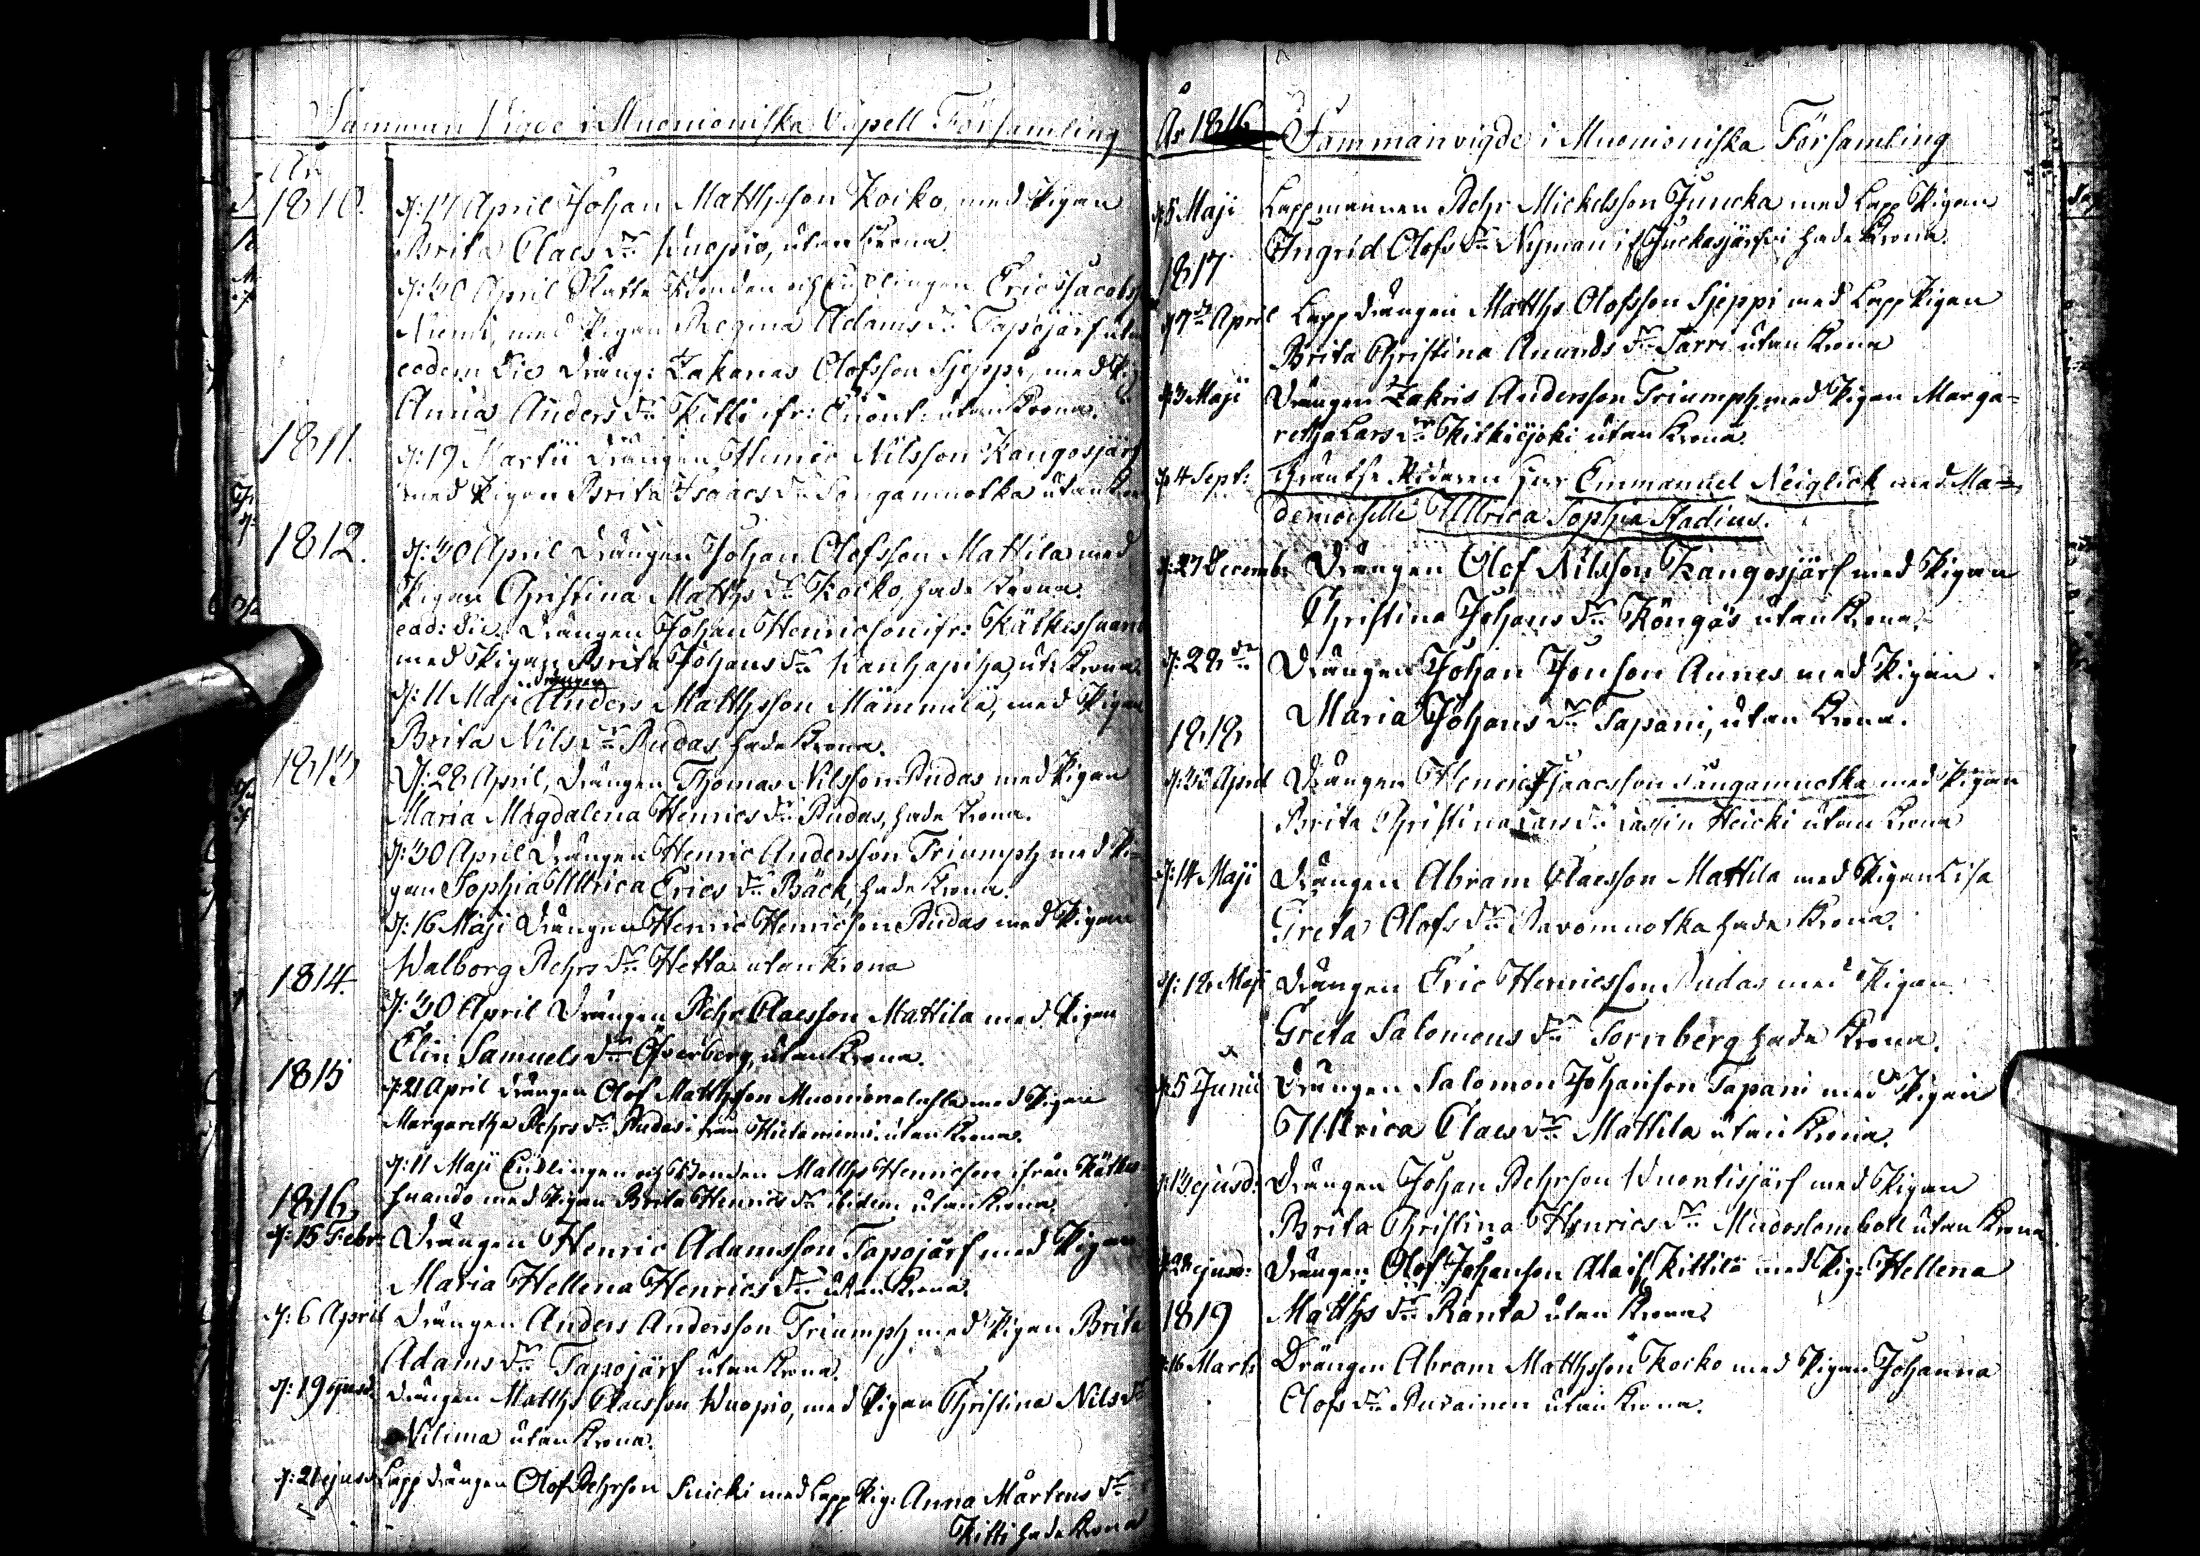 Samman Vigde i Muonioniska Capell Församling
År
1810. d: 17 April Johan Matthsson Koiko, med Pigan
Brita Claes dr Kuopio, utan Krona.
d: 30 April Bonden och Enklingen Eric Jacobss
Niemi, med Pigan Regina Adams dr Tapojärf utan
eodem die Dräng: Zakarias Olofsson Sjeppi, med Pig
Anna Anders dr Kitti ifr: Enont: utan Krona.
1811. d: 19 Martii Drängen Henric Nilsson Kangosjärf
med Pigan Brita Isaacs dr Songamuotka utan Kro
1812. d: 30 April Drängen Johan Olofsson Mattila med
Pigan Christina Matths dr Koiko, hade Krona.
ead: die. Drängen Johan Henricson ifr: Kätkesuan
med Pigan Brita Johans dr utan Krona.
d: 11 Maji Drängen Anders Matthsson Mämmilä, med Pigan
Brita Nils dr Rudas hade Krona.
1813 d: 28 April, Drängen Thomas Nilsson Rudas med Pigan
Maria Magdalena Henrics dr Rudas, hade Krona.
d: 30 April Drängen Henric Andersson Triumph med Pi-
gan Sophia Ullrica Erics dr Bäck, hade Krona.
d: 16 Maji Drängen Henric Henricson Rudas med Pigan
Walborg Pehrs dr Hetta utan Krona
1814.
d: 30 April Drängen Pehr Claesson Mattila med Pigan
Elin Samuels dr Öfverberg, utan Krona.
1815
d: 21 April Drängen Olof Matthsson Muonionalusta med Pigan
Margaretha Pehrs dr Rudas i från Hietaniemi. utan Krona.
d: 11 Maji Enklingen och Bonden Matths Henricson ifrån Kätke
suando med Pigan Brita Henrics dr ibidem utan Krona.
1816
d: 15 Febr: Drängen Henric Adamsson Tapojärf med Pigan
Maria Hellena Henrics dr utan Krona.
d: 6 April Drängen Anders Andersson Triumph med Pigan Brita
Adams dr Tapojärf utan Krona.
d: 19 ejusd. Drängen Matths Claesson Kuopio, med Pigan Christina Nils dr
Nilima utan Krona.
d: 21 ejusd. Lapp drängen Olof Pehrson Suicki med Lapp Pig: Anna Mårtens dr
Kitti hade Krona
År 1816 Sammanvigde i Muonioniska Församling
d: 5 Maji Lappmannen Pehr Mickelsson Juncka med Lapp Pigan
Ingrid Olofs dr Nyman if Juckasjärfvi hade Krona.
1817
d 7de April Lapp drängen Matths Olofsson Sjeppi med Lapp Pigan
Brita Christina Anunds dr Sarri utan Krona
d: 3 Maji Drängen Zakris Andersson Triumph med Pigan Marga=
retha Lars dr Kitkiöjoki utan Krona.
d: 4 Sept: Herr Emmanuel Neiglick med Ma=
demoiselle Ullrica Sophia Stadius.
d: 27 Decembr Drängen Olof Nilsson Kangosjärf med Pigan
Christina Johans dr Köngäs utan Krona.
d: 28 dr Drängen Johan Jonson Aunes med Pigan
Maria Johans dr Tapani, utan Krona.
1818
d: 30 April Drängen Henric Isaacsson Songamuotka med Pigan
Brita Christina Lars dr Lassin Heicki utan Krona
d: 14 Maji Drängen Abram Claesson Mattila med Pigan Lisa
Greta Olofs dr Parvomuotka hade Krona.
d: 12 Maji Drängen Eric Henricsson Rudas med Pigan
Greta Salomons dr Tornberg hade Krona.
d: 5 Junii Drängen Salomon Johanson Tapani med Pigan
Ullrica Claes dr Mattila utan Krona.
d: 13 ejusd: Drängen Johan Pehrson Wuontisjärf med Pigan
Brita Christina Henrics dr Mudoslombolt utan Krona
d: 28 ejusd: Drängen Olof Johanson Ala if Kittilä med Pig: Hellena
1819 Matths dr Ranta utan Krona.
d: 16 Mart: Drängen Abram Matthsson Koiko med Pigan Johanna
Olofs dr Puranen utan Krona.